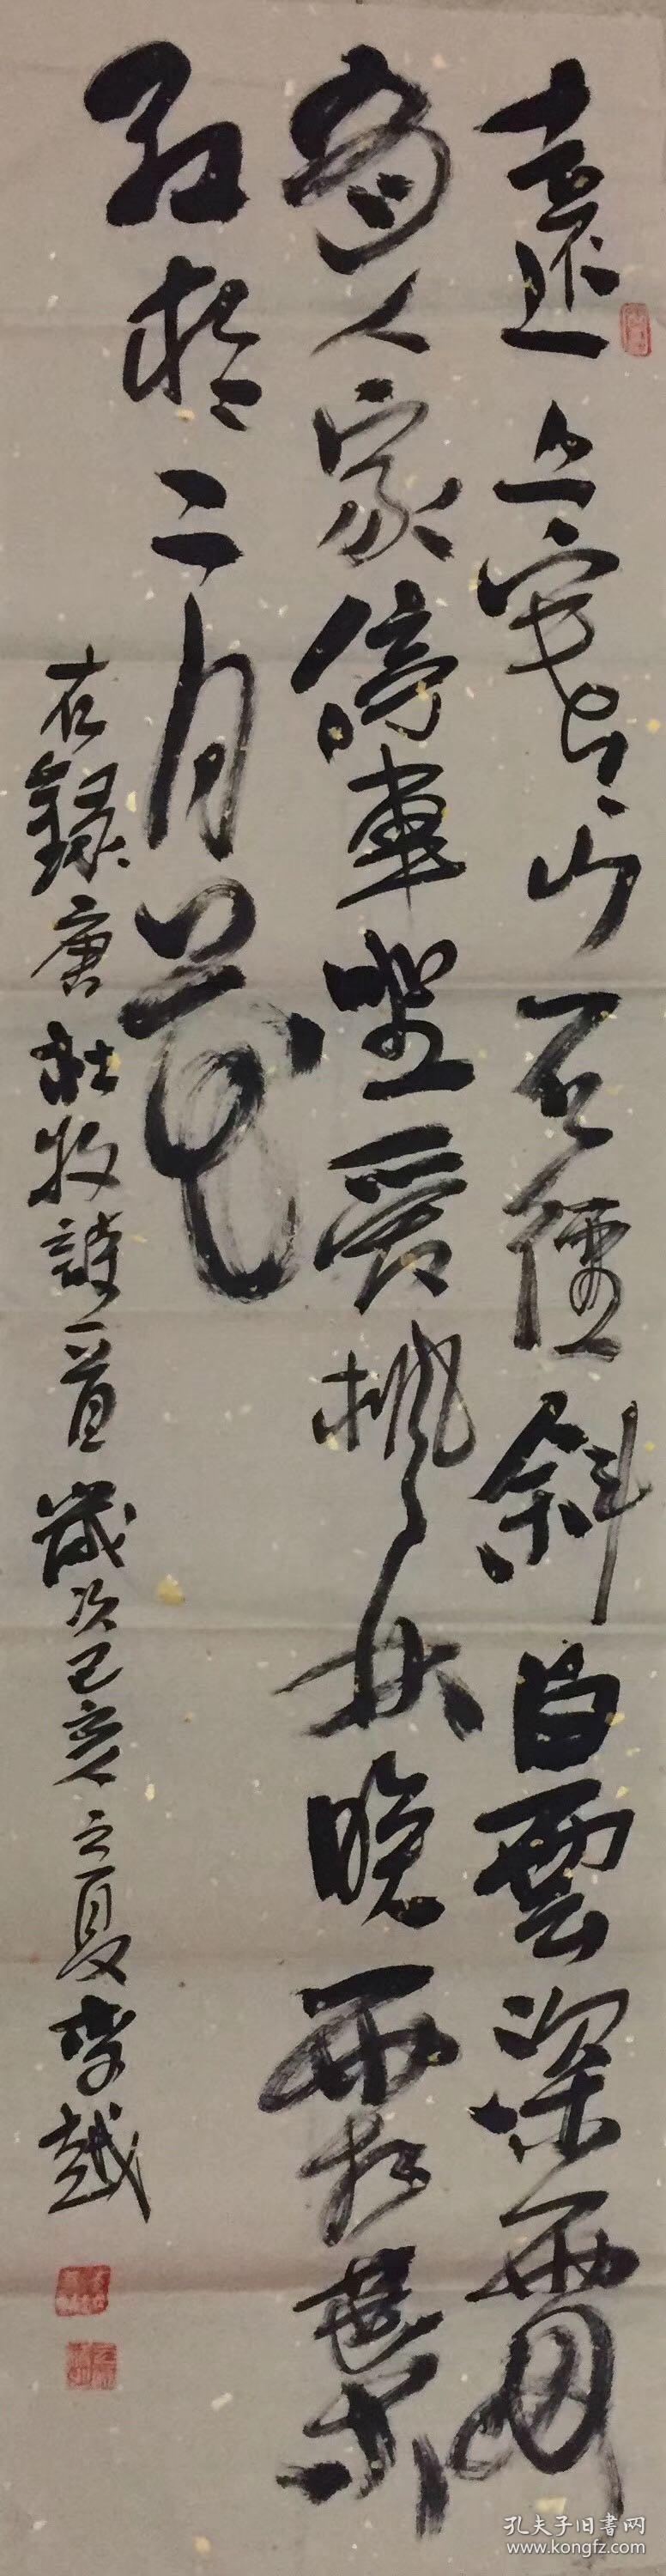 遠上寒山石徑斜白雲深處
有人家停車坐愛楓林晚霜葉
紅於二月花
右錄唐杜牧詩一首歲次己亥之夏李越
孔夫子旧书网
www.kongfz.com